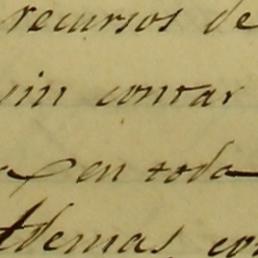 recursos de
sin contar
en toda
Ademas, con